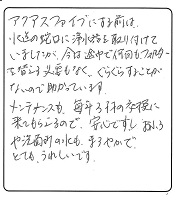 アクアスファイブにする前は、
水道の蛇口に浄水器を取り付けて
いましたが、今は途中で何回もフィルター
を替える必要もなく、ぐらぐらすることが
ないので助かっています。
メンテナンスも、毎年3月の交換に
来てもらえるので、安心ですし、おふろ
や洗面所の水も、まろやかで
とても、うれしいです。